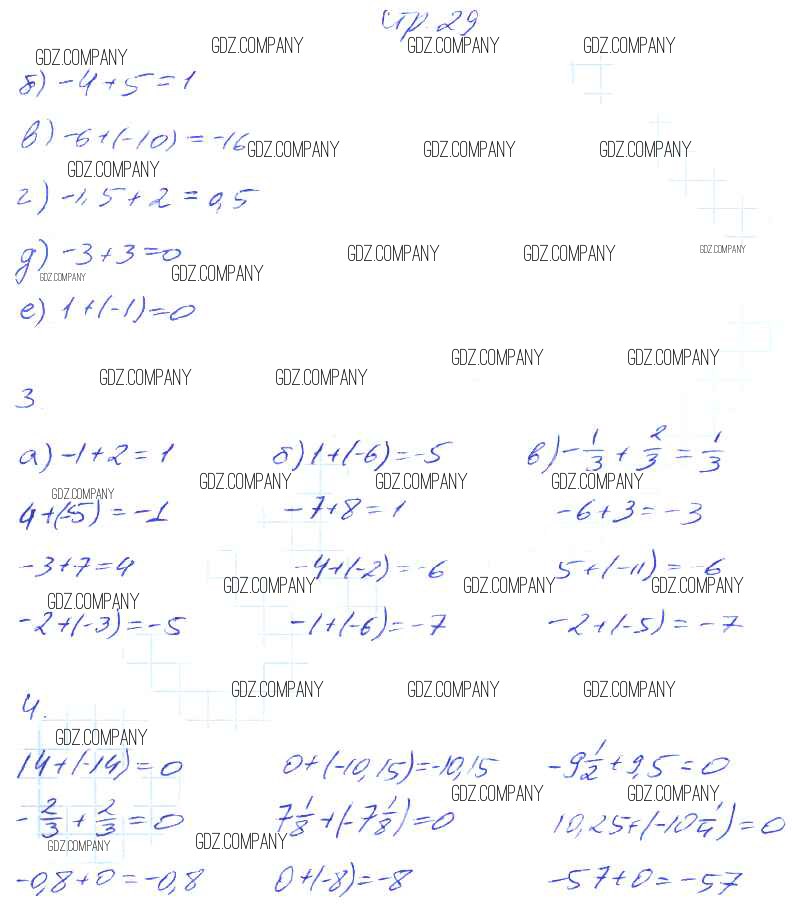 стр. 29
GDZ.COMPANY GDZ.COMPANY GDZ.COMPANY GDZ.COMPANY
б) -4+5=1
в) -6+(-10)=-16
GDZ.COMPANY GDZ.COMPANY GDZ.COMPANY
GDZ.COMPANY
г) -1,5+2=0,5
д) -3+3=0
GDZ.COMPANY GDZ.COMPANY GDZ.COMPANY
GDZ.COMPANY GDZ.COMPANY
е) 1+(-1)=0
GDZ.COMPANY GDZ.COMPANY
GDZ.COMPANY GDZ.COMPANY
3.
а) -1+2=1 б) 1+(-6)=-5 в) -1/3+2/3=1/3
GDZ.COMPANY GDZ.COMPANY GDZ.COMPANY GDZ.COMPANY
4+(-5)=-1 -7+8=1 -6+3=-3
-3+7=4 -4+(-2)=-6 5+(-11)=-6
GDZ.COMPANY GDZ.COMPANY GDZ.COMPANY GDZ.COMPANY
-2+(-3)=-5 -1+(-6)=-7 -2+(-5)=-7
GDZ.COMPANY GDZ.COMPANY GDZ.COMPANY
4.
GDZ.COMPANY
14+(-14)=0 0+(-10,15)=-10,15 -9 1/2+9,5=0
GDZ.COMPANY GDZ.COMPANY
-2/3+2/3=0 7 1/8+(-7 1/8)=0 10,25+(-10 1/4)=0
GDZ.COMPANY GDZ.COMPANY
-0,8+0=-0,8 0+(-8)=-8 -57+0=-57